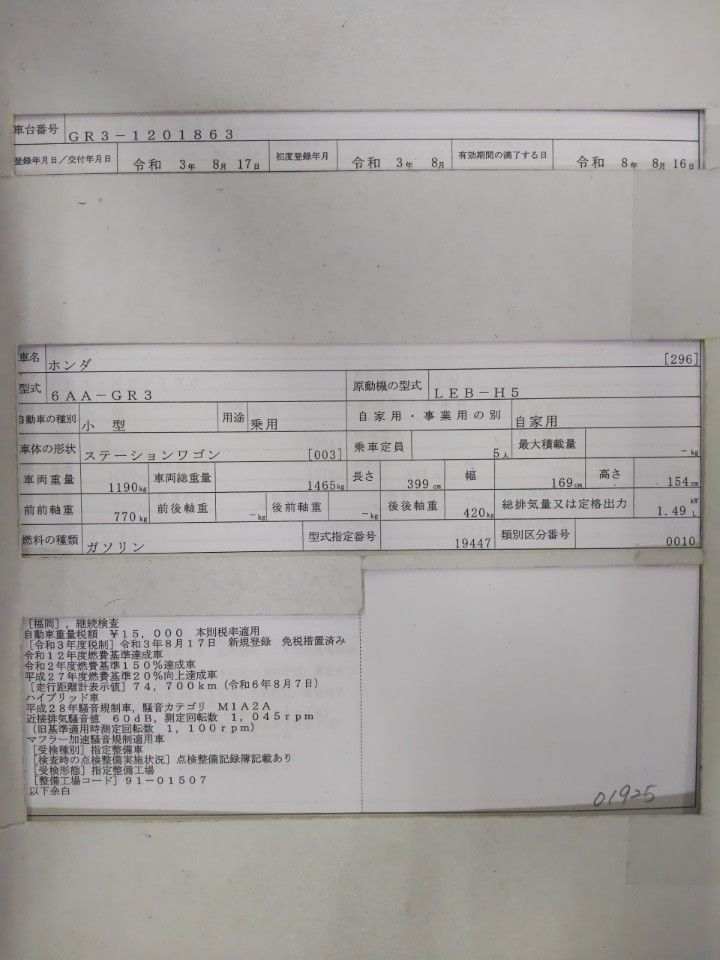 車台番号 GR3-1201863
登録年月日/交付年月日 令和 3年 8月 17日 初度登録年月 令和 3年 8月 有効期間の満了する日 令和 8年 8月 16日
車名 ホンダ [296]
型式 6AA-GR3 原動機の型式 LEB-H5
自動車の種別 小型 用途 乗用 自家用・事業用の別 自家用
車体の形状 ステーションワゴン [003] 乗車定員 5人 最大積載量 -kg
車両重量 1190kg 車両総重量 1465kg 長さ 399cm 幅 169cm 高さ 154cm
前前軸重 770kg 前後軸重 -kg 後前軸重 -kg 後後軸重 420kg 総排気量又は定格出力 1.49 kW L
燃料の種類 ガソリン 型式指定番号 19447 類別区分番号 0010
[福岡],継続検査
自動車重量税額 ¥15,000 本則税率適用
[令和3年度税制]令和3年8月17日 新規登録 免税措置済み
令和12年度燃費基準達成車
令和2年度燃費基準150%達成車
平成27年度燃費基準20%向上達成車
[走行距離計表示値]74,700km(令和6年8月7日)
ハイブリッド車
平成28年騒音規制車,騒音カテゴリ M1A2A
近接排気騒音値 60dB,測定回転数 1,045rpm
(旧基準適用時測定回転数 1,100rpm)
マフラー加速騒音規制適用車
[受検種別]指定整備車
[検査時の点検整備実施状況]点検整備記録簿記載あり
[受検形態]指定整備工場
[整備工場コード]91-01507
以下余白
01925